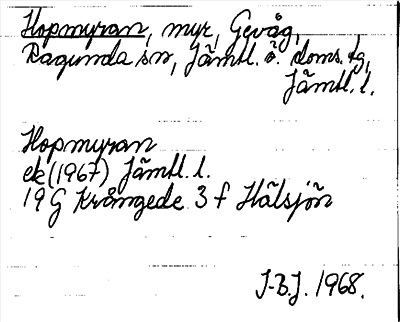 Hopmyran, myr, Gevåg,
Ragunda sn, Jämtl. ö. doms. tg,
Jämtl. l.
Hopmyran
ek (1967) Jämtl. l.
19 G Krångede 3 f Hälsjön
J-B.J. 1968.